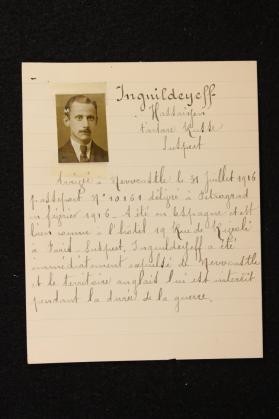 Inguildeyeff
Hassaisen
Tartare Russe
Suspect
Arrivé à Newcastle le 31 juillet 1916
passeport N° 10261 délivré à Petrograd
en février 1916. A été en Espagne et est
bien connu à l'hôtel 19 Rue de Rivoli
à Paris. Suspect. Inguildeyeff a été
immédiatement expulsé de Newcastle
et le territoire anglais lui est interdit
pendant la durée de la guerre.